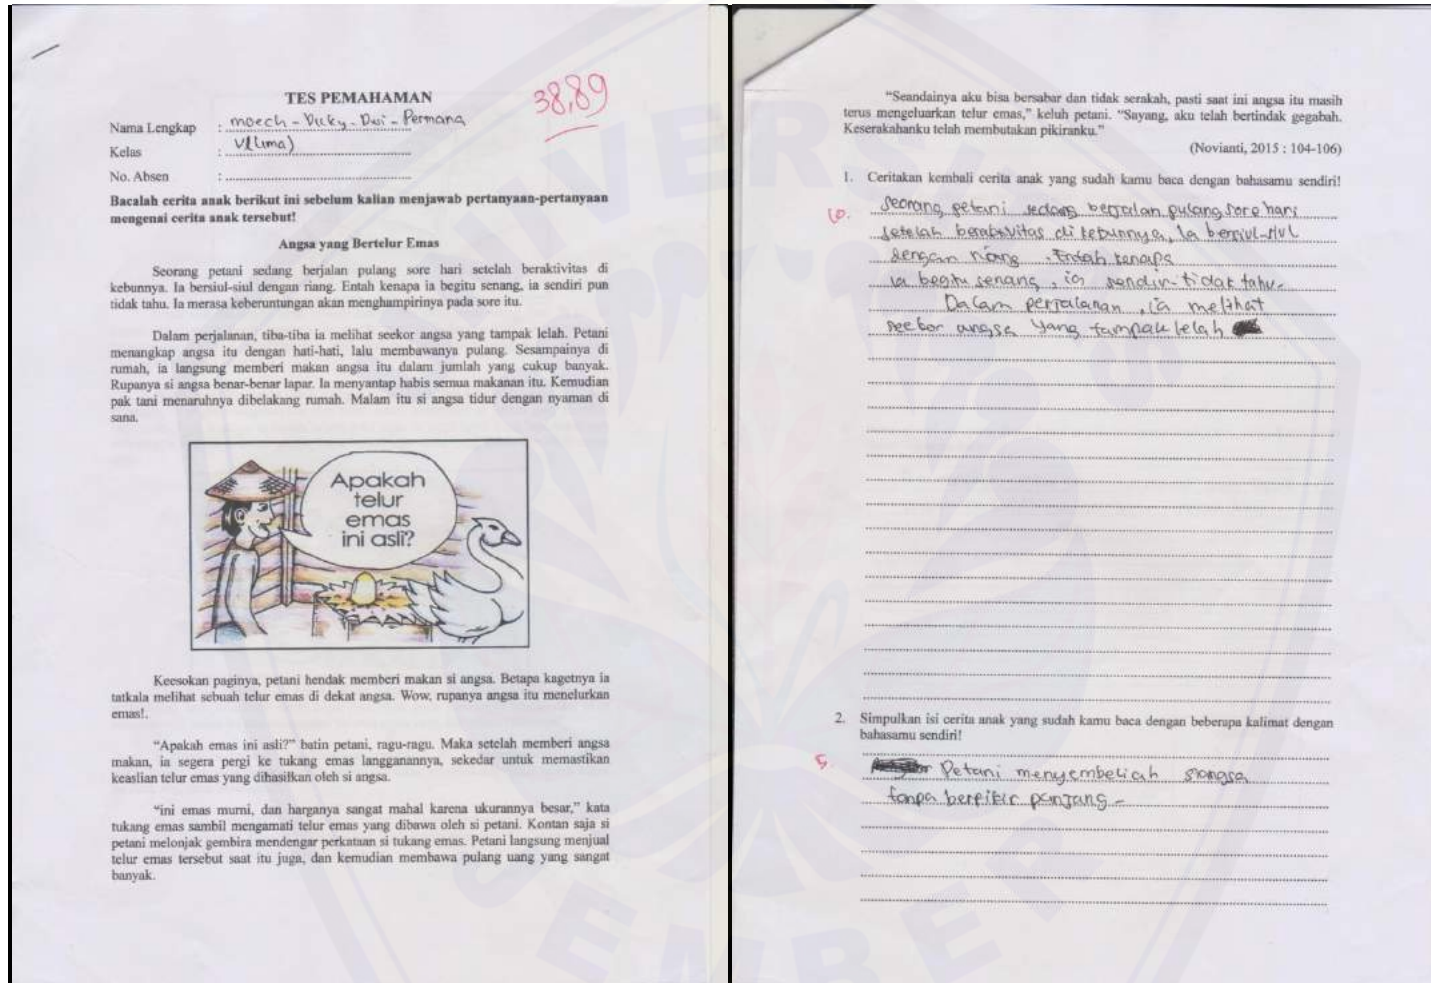 TES PEMAHAMAN
38,89
Nama Lengkap : moech - Dicky - Dwi - Permana
Kelas : V(lima)
No. Absen :
Bacalah cerita anak berikut ini sebelum kalian menjawab pertanyaan-pertanyaan
mengenai cerita anak tersebut!
Angsa yang Bertelur Emas
Seorang petani sedang berjalan pulang sore hari setelah beraktivitas di
kebunnya. Ia bersiul-siul dengan riang. Entah kenapa ia begitu senang, ia sendiri pun
tidak tahu. Ia merasa keberuntungan akan menghampirinya pada sore itu.
Dalam perjalanan, tiba-tiba ia melihat seekor angsa yang tampak lelah. Petani
menangkap angsa itu dengan hati-hati, lalu membawanya pulang. Sesampainya di
rumah, ia langsung memberi makan angsa itu dalam jumlah yang cukup banyak.
Rupanya si angsa benar-benar lapar. Ia menyantap habis semua makanan itu. Kemudian
pak tani menaruhnya dibelakang rumah. Malam itu si angsa tidur dengan nyaman di
sana.
Apakah
telur
emas
ini asli?
Keesokan paginya, petani hendak memberi makan si angsa. Betapa kagetnya ia
tatkala melihat sebuah telur emas di dekat angsa. Wow, rupanya angsa itu menelurkan
emas!.
“Apakah emas ini asli?” batin petani, ragu-ragu. Maka setelah memberi angsa
makan, ia segera pergi ke tukang emas langganannya, sekedar untuk memastikan
keaslian telur emas yang dihasilkan oleh si angsa.
“ini emas murni, dan harganya sangat mahal karena ukurannya besar,” kata
tukang emas sambil mengamati telur emas yang dibawa oleh si petani. Kontan saja si
petani melonjak gembira mendengar perkataan si tukang emas. Petani langsung menjual
telur emas tersebut saat itu juga, dan kemudian membawa pulang uang yang sangat
banyak.
“Seandainya aku bisa bersabar dan tidak serakah, pasti saat ini angsa itu masih
terus mengeluarkan telur emas,” keluh petani. “Sayang, aku telah bertindak gegabah.
Keserakahanku telah membutakan pikiranku.”
(Novianti, 2015 : 104-106)
1. Ceritakan kembali cerita anak yang sudah kamu baca dengan bahasamu sendiri!
10.
Seorang petani sedang berjalan pulang sore hari
setelah beraktivitas di kebunnya, Ia bersiul-siul
dengan riang. Entah kenapa
ia begitu senang, ia sendiri tidak tahu.
Dalam perjalanan, ia melihat
seekor angsa yang tampak lelah
2. Simpulkan isi cerita anak yang sudah kamu baca dengan beberapa kalimat dengan
bahasamu sendiri!
5.
Petani menyembeliah siangsa
tanpa berfikir panjang -